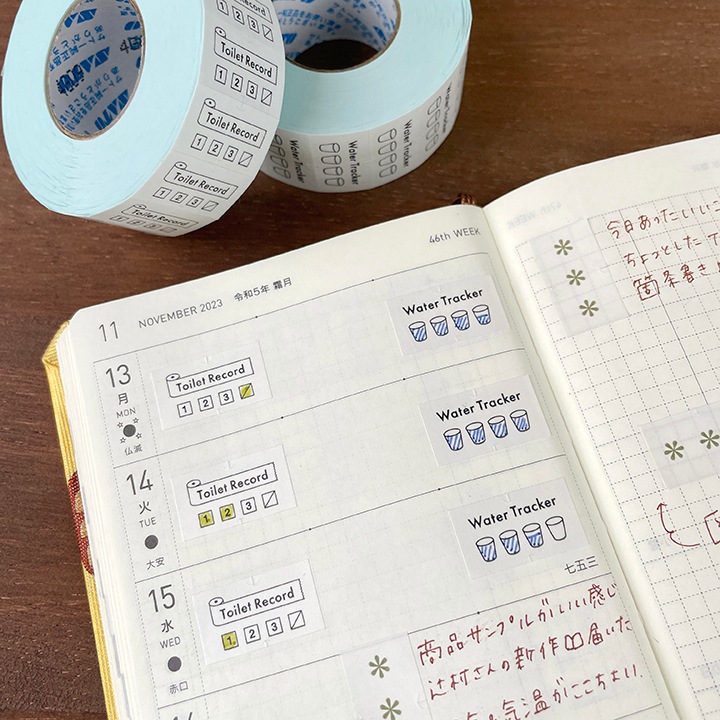 1 2 3
Toilet Record
1 2 3
Toilet Record
1 2 3
Toilet Record
1 2 3
Toilet Record
Water Tracker
Water Tracker
Water Tracker
46th WEEK
11 NOVEMBER 2023 令和5年 霜月
13
月
MON
仏滅
Toilet Record
1 2 3
Water Tracker
14
火
TUE
大安
Toilet Record
1 2 3
Water Tracker
15
水
WED
赤口
Toilet Record
1 2 3
Water Tracker
七五三
商品サンプルがいい感じ
辻村さんの新作届いた
気温がここちよい
47th WEEK
今日あったいい
ちょっとした
箇条書き